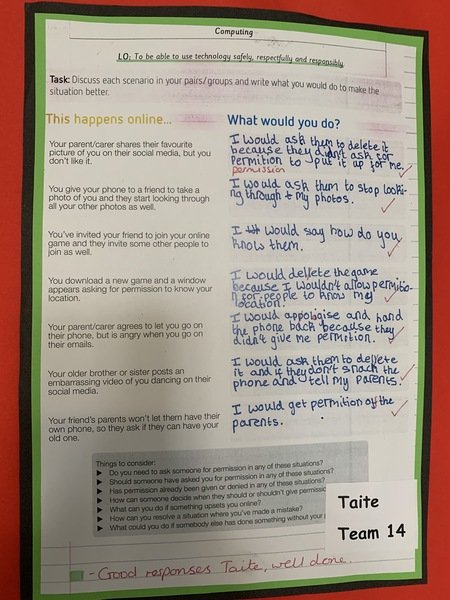 Computing
LO: To be able to use technology safely, respectfully and responsibly.
Task: Discuss each scenario in your pairs/groups and write what you would do to make the
situation better.
This happens online...
What would you do?
Your parent/carer shares their favourite
picture of you on their social media, but you
don't like it.
I would ask them to delete it
because they didn't ask for
Permition to put it up for me.
permission
You give your phone to a friend to take a
photo of you and they start looking through
all your other photos as well.
I would ask them to stop looki-
ng through my photos.
You've invited your friend to join your online
game and they invite some other people to
join as well.
I would say how do you
know them.
You download a new game and a window
appears asking for permission to know your
location.
I would dellete the game
because I wouldn't allow permitio-
n for people to know my
location.
Your parent/carer agrees to let you go on
their phone, but is angry when you go on
their emails.
I would appoligise and hand
the phone back because they
didn't give me permition.
Your older brother or sister posts an
embarrassing video of you dancing on their
social media.
I would ask them to dellete
it and if they don't snach the
phone and tell my parents.
Your friend's parents won't let them have their
own phone, so they ask if they can have your
old one.
I would get permition of the
parents.
Things to consider:
Do you need to ask someone for permission in any of these situations?
Should someone have asked you for permission in any of these situations?
Has permission already been given or denied in any of these situations?
How can someone decide when they should or shouldn't give
What can you do if something upsets you online?
How can you resolve a situation where you've made a mistake?
What could you do if somebody else has done something without your
Taite
Team 14
- Good responses Taite, well done.